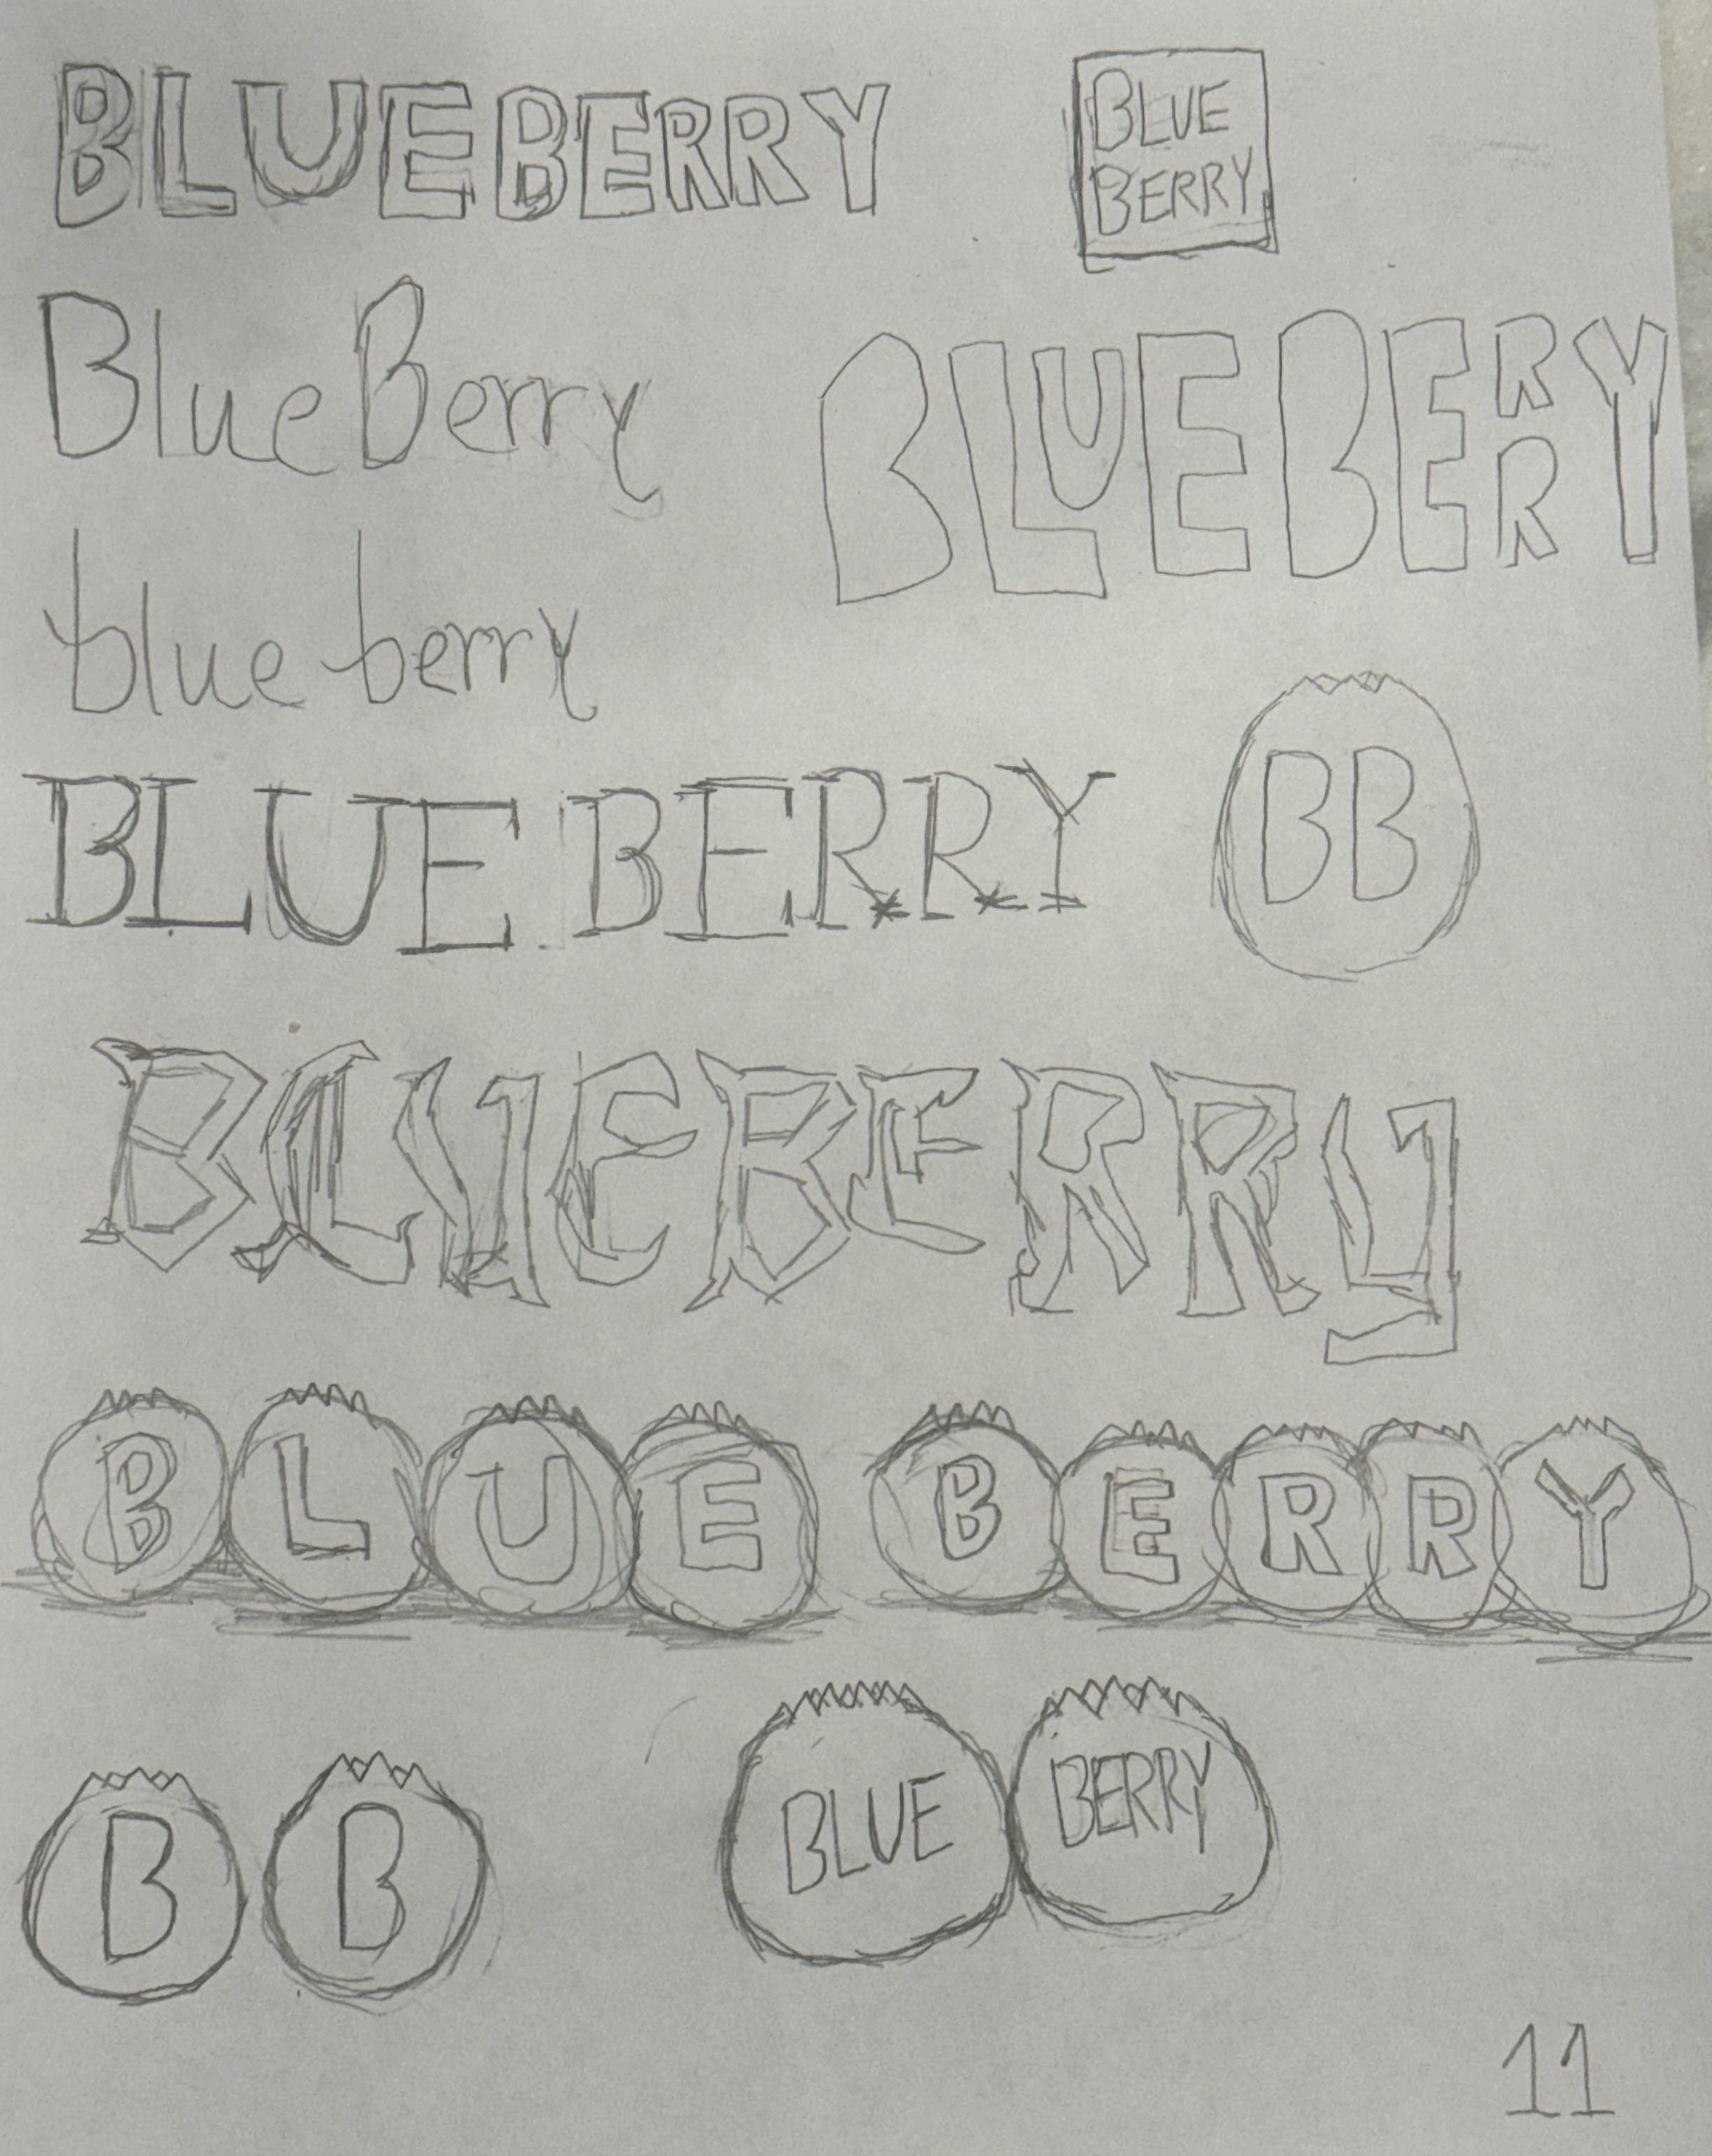 BLUEBERRY
BLUE
BERRY
BlueBerry
BLUEBERRY
blue berry
BLUE BERRY
BB
BLUEBERRY
BLUE BERRY
B B
BLUE BERRY
11